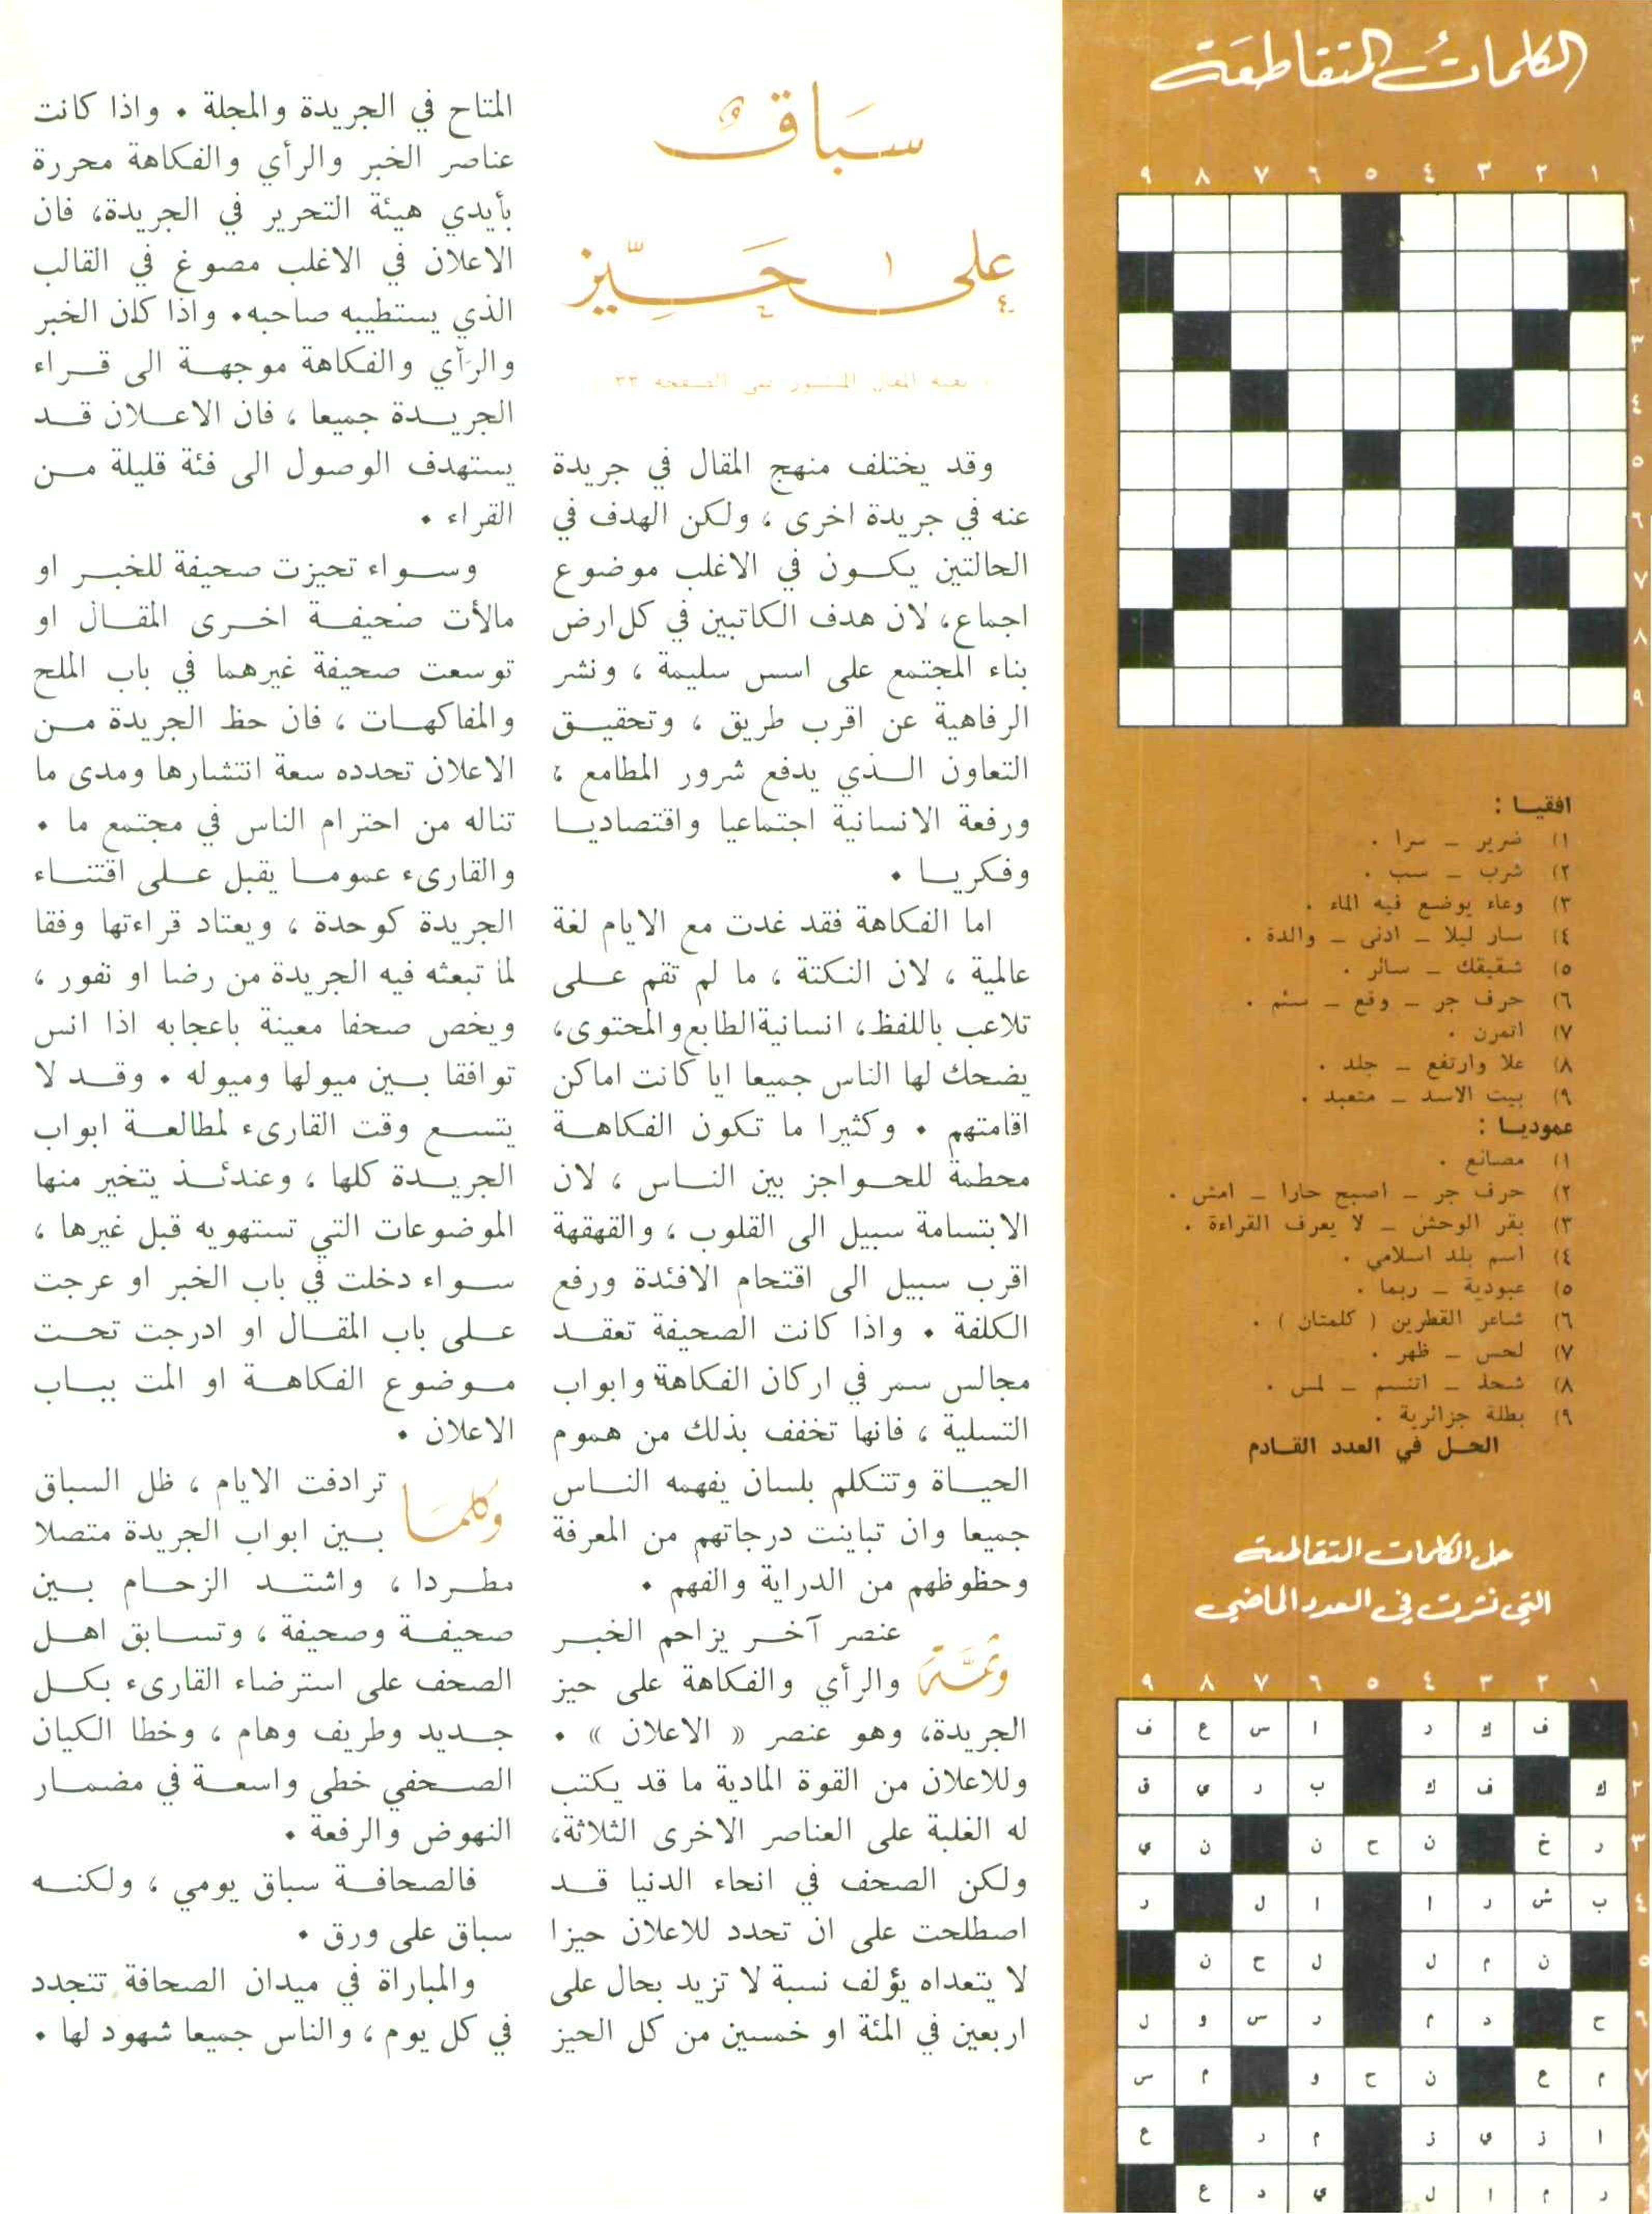 الكلمات المتقاطعة
٩ ٨ ٧ ٦ ٥ ٤ ٣ ٢ ١
١
٢
٣
٤
٥
٦
٧
٨
٩
افقيا :
١) ضرير ــ سرا .
٢) شرب ــ سب .
٣) وعاء يوضع فيه الماء .
٤) سار ليلا ــ ادنى ــ والدة .
٥) شقيقك ــ سائر .
٦) حرف جر ــ وقع ــ سئم .
٧) اتمرن .
٨) علا وارتفع ــ جلد .
٩) بيت الاسد ــ متعبد .
عموديا :
١) مصانع .
٢) حرف جر ــ اصبح حارا ــ امش .
٣) بقر الوحش ــ لا يعرف القراءة .
٤) اسم بلد اسلامي .
٥) عبودية ــ ربما .
٦) شاعر القطرين ( كلمتان ) .
٧) لحس ــ ظهر .
٨) شحذ ــ اتنسم ــ لمس .
٩) بطلة جزائرية .
الحل في العدد القادم
حل الكلمات المتقاطعة
التي نشرت في العدد الماضي
٩ ٨ ٧ ٦ ٥ ٤ ٣ ٢ ١
١ ف ك ر ا س ع ف
٢ ك ف ك ب ر ي ق
٣ ر خ ن ح ن ن ي
٤ ب ش ر ا ا ل ر
٥ ن م ل ل ح ن
٦ ح د م ر س و ل
٧ م ع ن ح و م س
٨ ا ز ي ز م ر ع
٩ ر م ا ل ي د ع
سباق
على حيّز
بقية المقال المنشور في الصفحة ٣٣
وقد يختلف منهج المقال في جريدة
عنه في جريدة اخرى ، ولكن الهدف في
الحالتين يكون في الاغلب موضوع
اجماع، لان هدف الكاتبين في كل ارض
بناء المجتمع على اسس سليمة ، ونشر
الرفاهية عن اقرب طريق ، وتحقيق
التعاون الذي يدفع شرور المطامع ،
ورفعة الانسانية اجتماعيا واقتصاديا
وفكريا .
اما الفكاهة فقد غدت مع الايام لغة
عالمية ، لان النكتة ، ما لم تقم على
تلاعب باللفظ، انسانية الطابع والمحتوى،
يضحك لها الناس جميعا ايا كانت اماكن
اقامتهم . وكثيرا ما تكون الفكاهة
محطمة للحواجز بين الناس ، لان
الابتسامة سبيل الى القلوب ، والقهقهة
اقرب سبيل الى اقتحام الافئدة ورفع
الكلفة . واذا كانت الصحيفة تعقد
مجالس سمر في اركان الفكاهة وابواب
التسلية ، فانها تخفف بذلك من هموم
الحياة وتتكلم بلسان يفهمه الناس
جميعا وان تباينت درجاتهم من المعرفة
وحظوظهم من الدراية والفهم .
وثمّة عنصر آخر يزاحم الخبر
والرأي والفكاهة على حيز
الجريدة، وهو عنصر « الاعلان » .
وللاعلان من القوة المادية ما قد يكتب
له الغلبة على العناصر الاخرى الثلاثة،
ولكن الصحف في انحاء الدنيا قد
اصطلحت على ان تحدد للاعلان حيزا
لا يتعداه يؤلف نسبة لا تزيد بحال على
اربعين في المئة او خمسين من كل الحيز
المتاح في الجريدة والمجلة . واذا كانت
عناصر الخبر والرأي والفكاهة محررة
بأيدي هيئة التحرير في الجريدة، فان
الاعلان في الاغلب مصوغ في القالب
الذي يستطيبه صاحبه. واذا كان الخبر
والرأي والفكاهة موجهة الى قراء
الجريدة جميعا ، فان الاعلان قد
يستهدف الوصول الى فئة قليلة من
القراء .
وسواء تحيزت صحيفة للخبر او
مالأت صحيفة اخرى المقال او
توسعت صحيفة غيرهما في باب الملح
والمفاكهات ، فان حظ الجريدة من
الاعلان تحدده سعة انتشارها ومدى ما
تناله من احترام الناس في مجتمع ما .
والقارىء عموما يقبل على اقتناء
الجريدة كوحدة ، ويعتاد قراءتها وفقا
لما تبعثه فيه الجريدة من رضا او نفور ،
ويخص صحفا معينة باعجابه اذا انس
توافقا بين ميولها وميوله . وقد لا
يتسع وقت القارىء لمطالعة ابواب
الجريدة كلها ، وعندئذ يتخير منها
الموضوعات التي تستهويه قبل غيرها ،
سواء دخلت في باب الخبر او عرجت
على باب المقال او ادرجت تحت
موضوع الفكاهة او المت بباب
الاعلان .
وكلما ترادفت الايام ، ظل السباق
بين ابواب الجريدة متصلا
مطردا ، واشتد الزحام بين
صحيفة وصحيفة ، وتسابق اهل
الصحف على استرضاء القارىء بكل
جديد وطريف وهام ، وخطا الكيان
الصحفي خطى واسعة في مضمار
النهوض والرفعة .
فالصحافة سباق يومي ، ولكنه
سباق على ورق .
والمباراة في ميدان الصحافة تتجدد
في كل يوم ، والناس جميعا شهود لها .